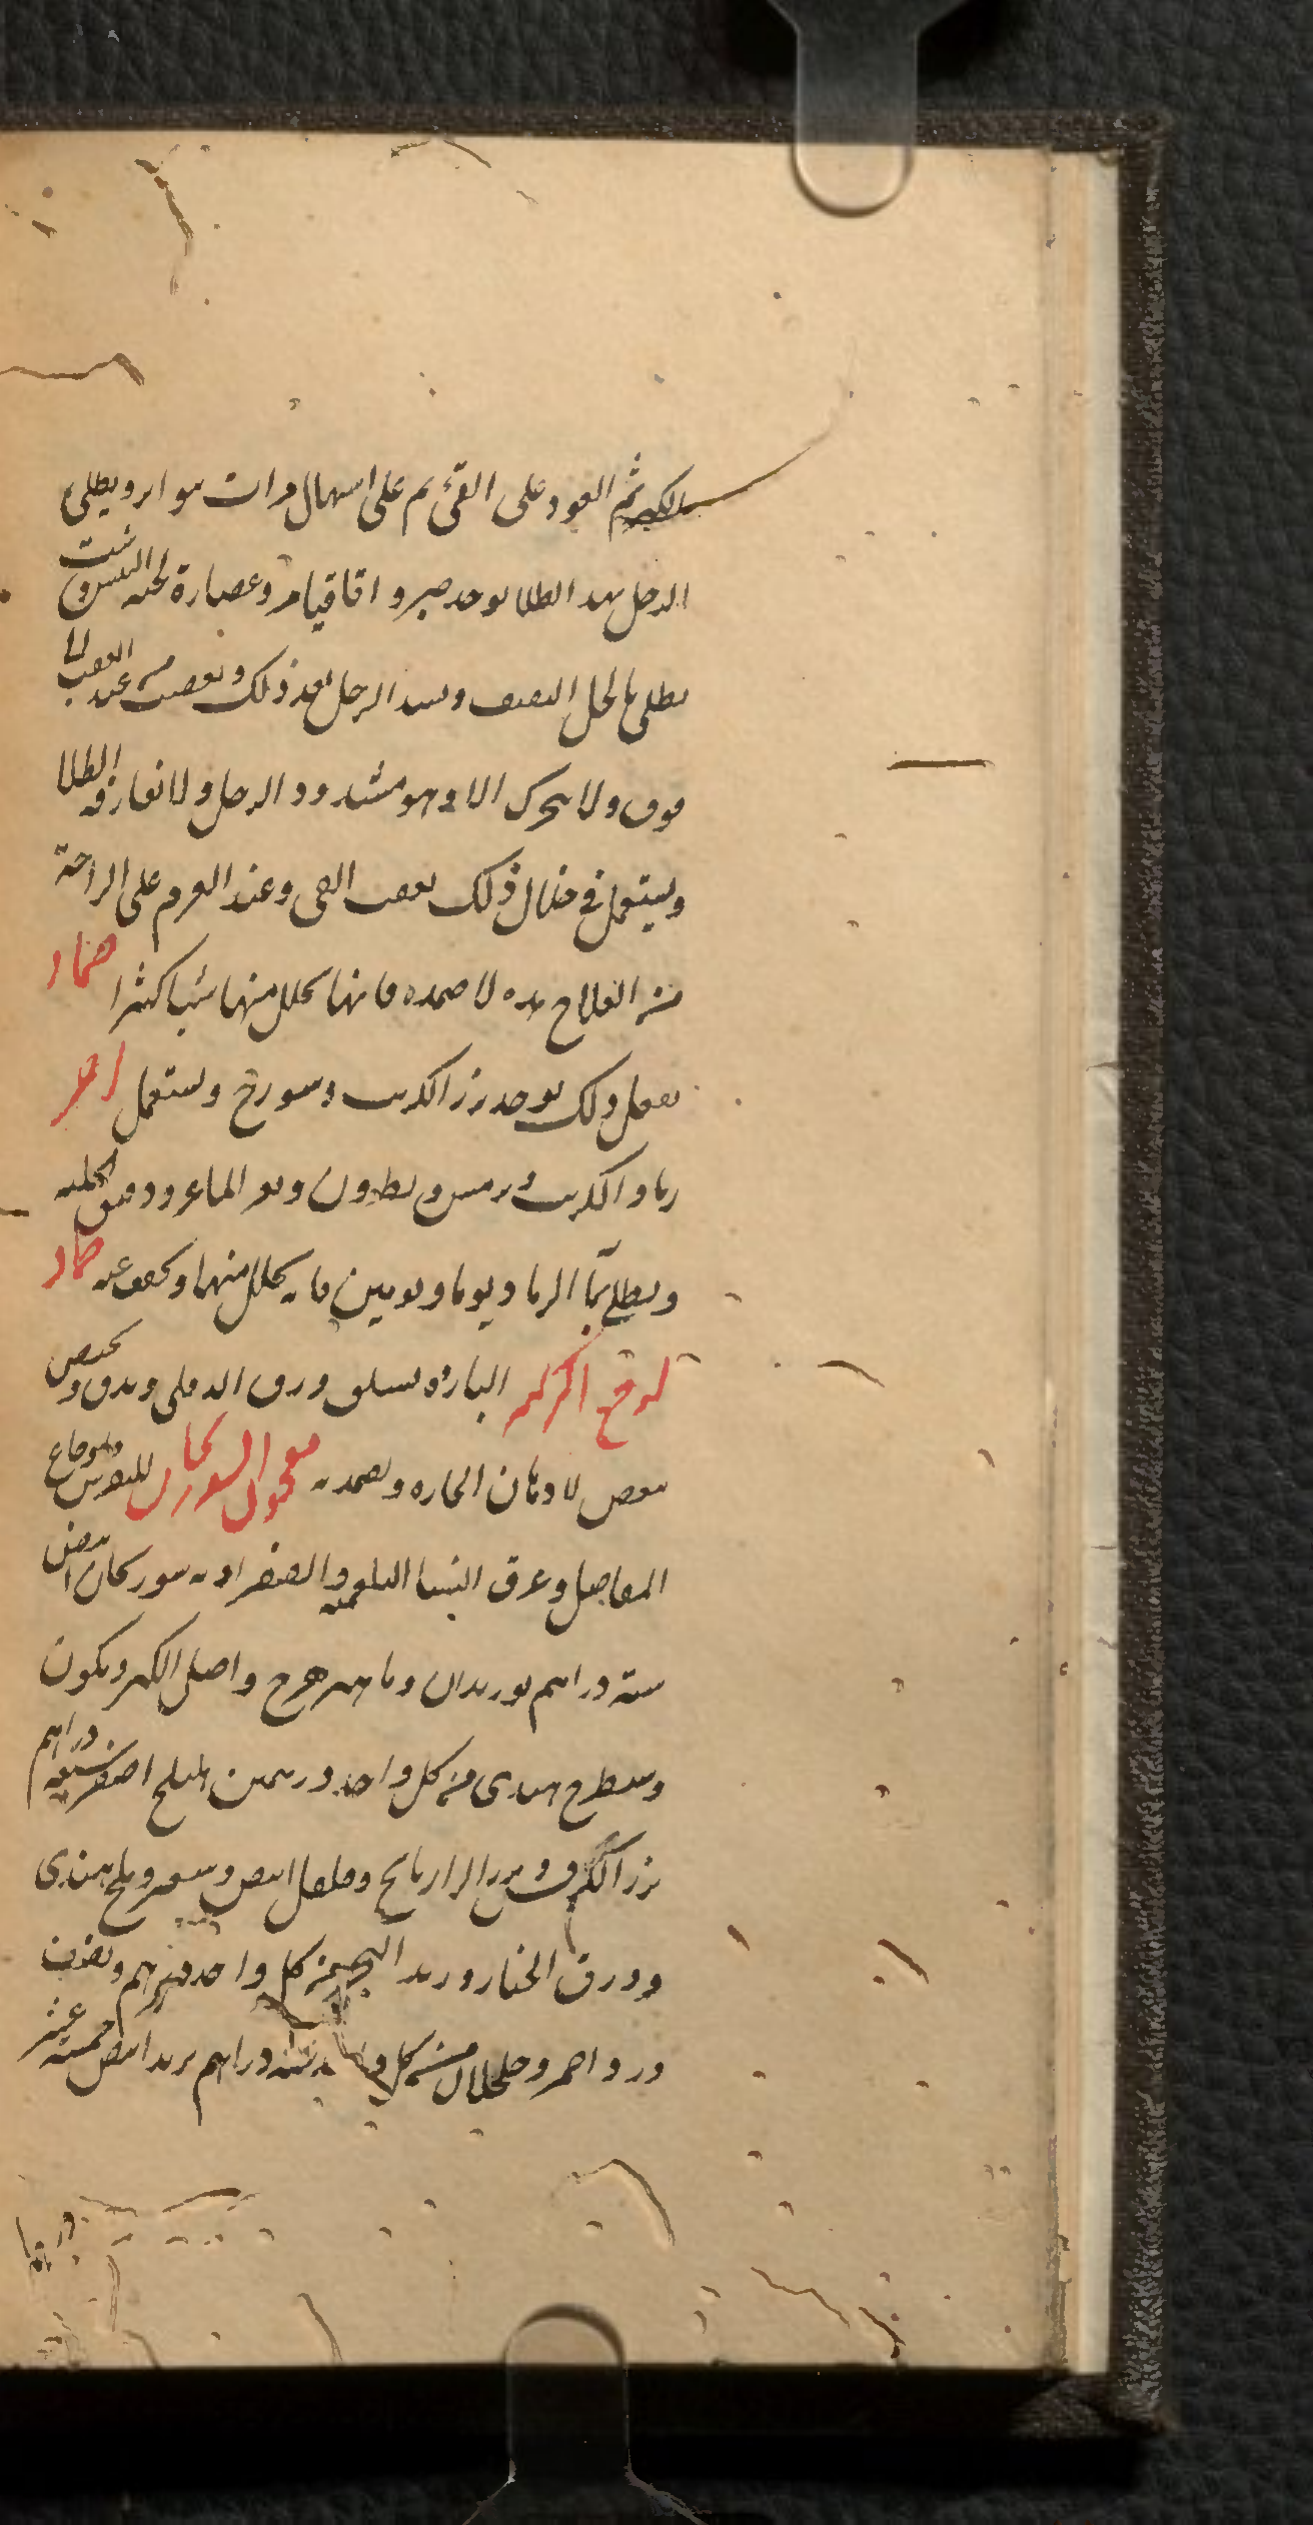 الكبير ثم العود على القئ ثم على اسهال مرات متواتر ويطلى
الرجل بهذا الطلا يوخذ صبر واقاقيا مر وعصارة لحية التيس وشت
يطلى بالخل الثقيف ويشد الرجل بعد ذلك وتعصب من عند العقب الى
فوق ولا يتحرك الا وهو مشدود الرجل ولا تفارقه الطلا
ويستعمل في خلال ذلك بعض القى وعند العزم على الراحة
من العلاج بهذه الاضمده فانها تحلل منها شيا كثيرا ضماد
يفعل ذلك يوخذ زر الكرنب وسورج ويستعمل اخر
رماد الكرنب وترمس ونطرون وبعر الماعز ودقيق الحلبه
ويطلى بماالرماد يوما ويومين فانه يحلل منها ويخفف عنه ضماد
لوجع الركبه البارده يسلق ورق الدفلى ويدق و
ببعض الادهان الحاره ويضمد به معجون السورنجان للنقرس واوجاع
المفاصل وعرق النسا البلغميه والصفراويه سورنجان ابيض
سته دراهم بوزيدان وماهيزهرج واصل الكبر وكمون
وشيطرج هندى من كل واحد درهمين اهليلج اصفر سبعه دراهم
بزر الكرفس وبزر الرازيانج وفلفل ابيض وصعتر وملح هندى
وورق الحنا وزبد البحر من كل واحد درهم ونصف
ورد احمر وجلجلان من كل سته دراهم تربد ابيض خمسة عشر